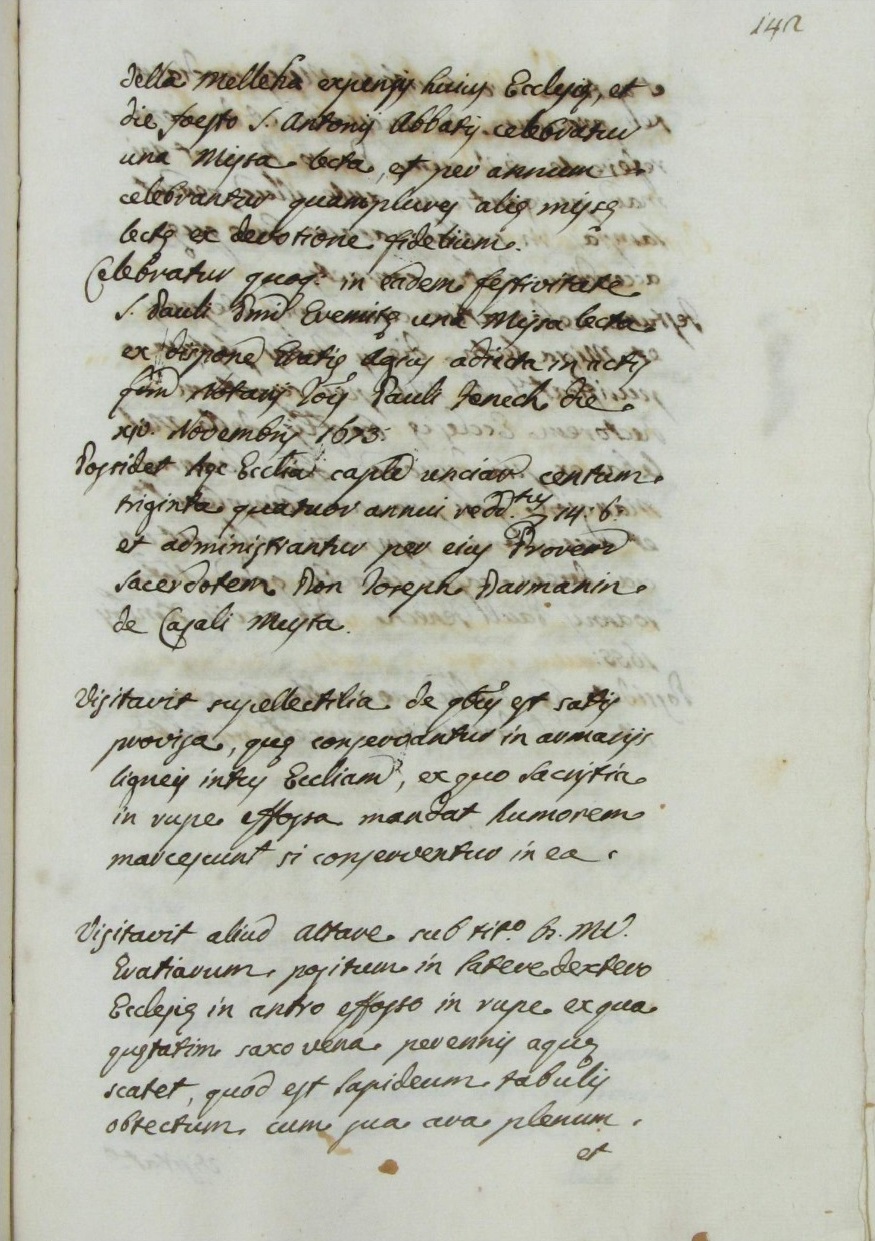 142
della Melleha expensis huius Ecclesię, et
die foesto S. Antonij Abbatis celebratur
una Missa lecta, et per annum
celebrantur quamplures alię missę
lectę ex devotione fidelium.
Celebratur quoq. in eadem festivitate
S. Pauli Primi Eremitę una Missa lecta
ex dispone Gratię Agius adiecta in actis
Notarij Jois Pauli Fenech die
xiv. Novembris 1673.
Possidet hęc Ecclia caple unciar. centum
triginta quatuor annui redd.tus 14. 6.
et administrantur per eius Procurem
sacerdotem Don Joseph Darmanin
de Casali Musta.
Visitavit supellectilia de qbus est satis
provisa, quę conservantur in armarijs
ligneis intus Eccliam, ex quo sacristia
in rupe effossa mandat humorem
marcescunt si conserventur in ea.
Visitavit aliud Altare sub tit.o B. M. V.
Gratiarum positum in latere dextero
Ecclesię in antro effosso in rupe ex qua
guttatim saxo vena perennis aquę
scatet, quod est lapideum tabulis
obtectum cum sua ara plenum
et